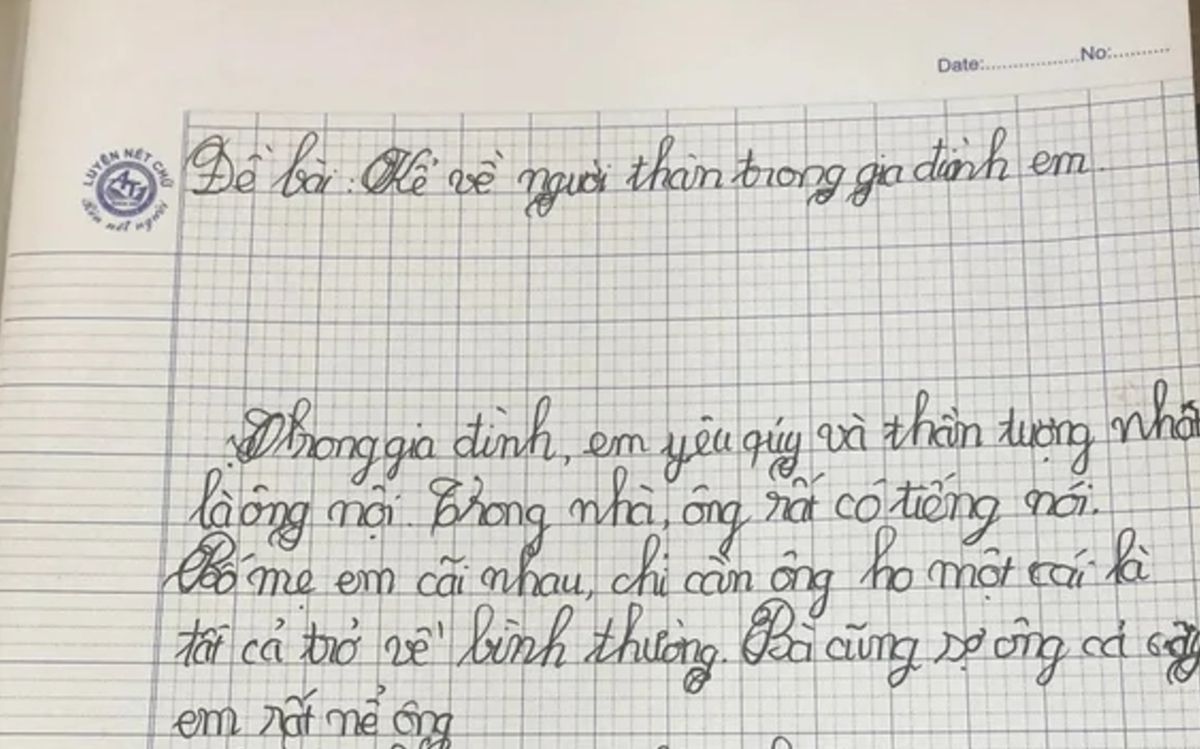 Date:..................No:...........
LUYỆN NÉT CHỮ
Rèn nết người
Đề bài: Kể về người thân trong gia đình em.
Trong gia đình, em yêu qúy và thần tượng nhất
là ông nội. Trong nhà, ông rất có tiếng nói.
Bố mẹ em cãi nhau, chỉ cần ông ho một cái là
tất cả trở về bình thường. Bà cũng sợ ông cả
em rất nể ông